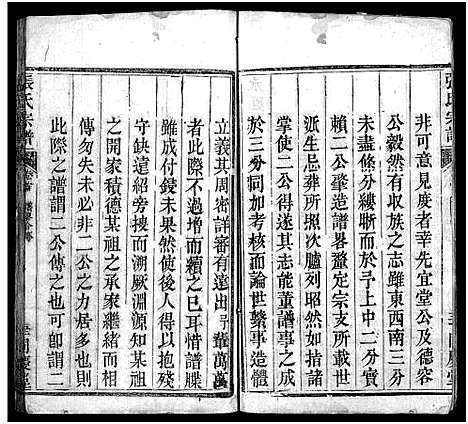 張氏宗譜
非可意見度者幸先宜堂公及德容
公毅然有収族之志雖東西南三分
未盡條分縷晰而於予上中二分實
賴二公肇造譜畧釐定宗支所載
派生忌葬所照次臚列昭然如右
掌使二公得遂其志能董譜事之成
於三分同加考核而論世繫事造體
立義其周密詳審有遠出予輩萬萬
者此際不過增而續之已耳惜譜牒
雖成付鋟未果然使後人得以抱殘
守缺遠紹旁搜而溯厥淵源知某祖
之開家積德某祖之承家繼緒而同
傳勿失未必非二公之力居多也則
此際之譜謂二公傳之也可卽謂二
張氏宗譜